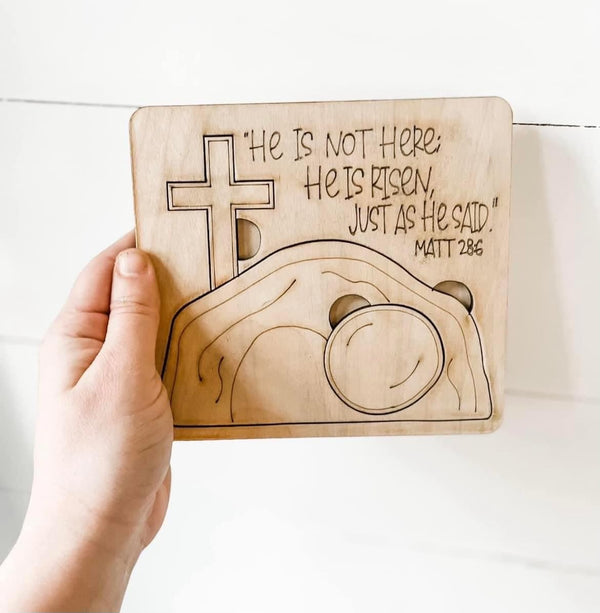 "He is not here;
He is risen,
just as He said."
Matt 28:6